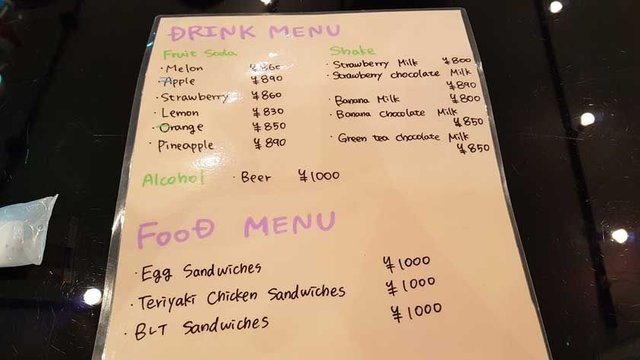 DRINK MENU
Fruit Soda
· Melon ¥860
· Apple ¥890
· Strawberry ¥860
· Lemon ¥830
· Orange ¥850
· Pineapple ¥890
Shake
· Strawberry Milk ¥800
· Strawberry chocolate Milk
¥890
· Banana Milk ¥800
· Banana chocolate Milk
¥850
· Green tea chocolate Milk
¥850
Alcohol · Beer ¥1000
FOOD MENU
· Egg Sandwiches ¥1000
· Teriyaki Chicken Sandwiches ¥1000
· BLT Sandwiches ¥1000